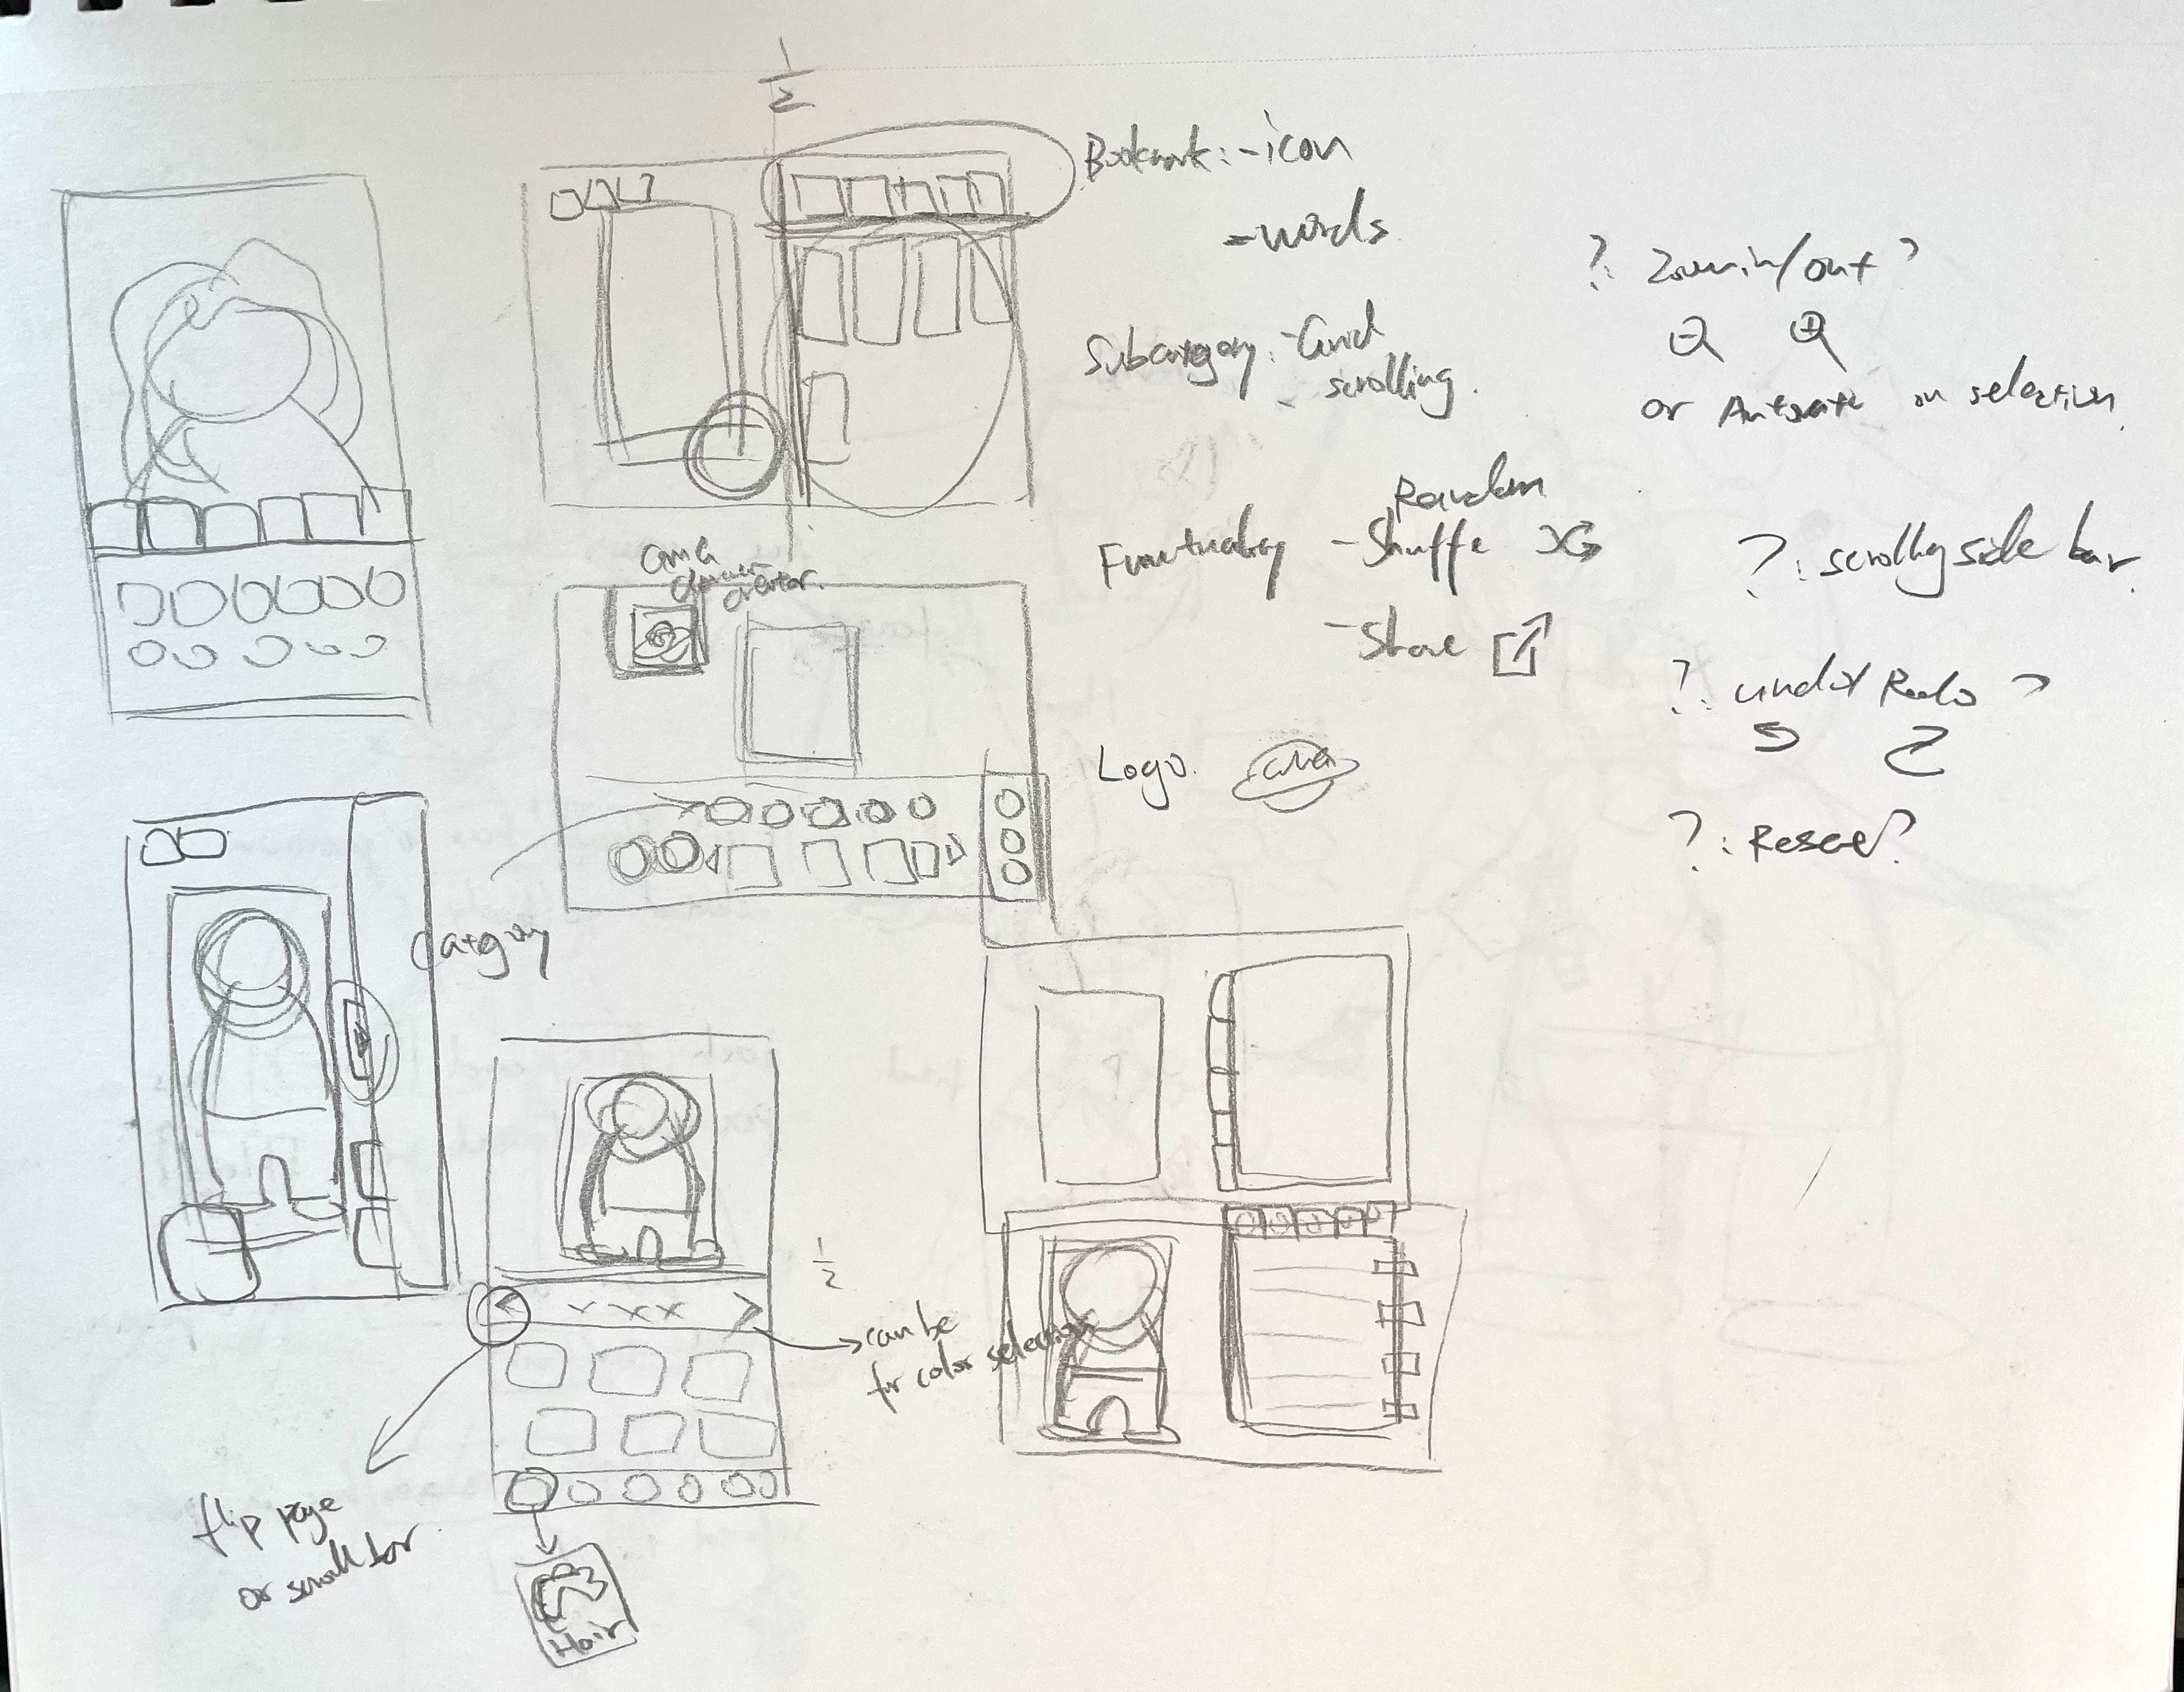 1/2
Bookmark: -icon
-words
? Zoom in/out ?
or Automate on selection
Subcategory: -Grid
- scrolling.
Random
Functionality -Shuffe
-Share
? : scrolling side bar.
? undo/ Redo ?
? : Reset?
creator.
Logo.
Category
1/2
can be
for color selection
flip page
or scroll bar
Hair